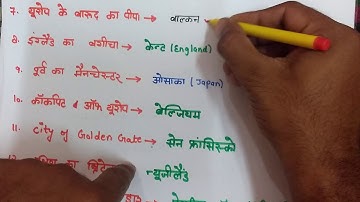 7. यूरोप के बारूद का पीपा → बाल्कन
8. इंग्लैंड का बगीचा → केन्ट (England)
9. पूर्व का मैनचेस्टर → ओसाका (Japan)
10. कॉकपिट ऑफ यूरोप → बेल्जियम
11. City of Golden Gate → सेन फ्रांसिस्को
का ब्रिटेन न्यूजीलैंड